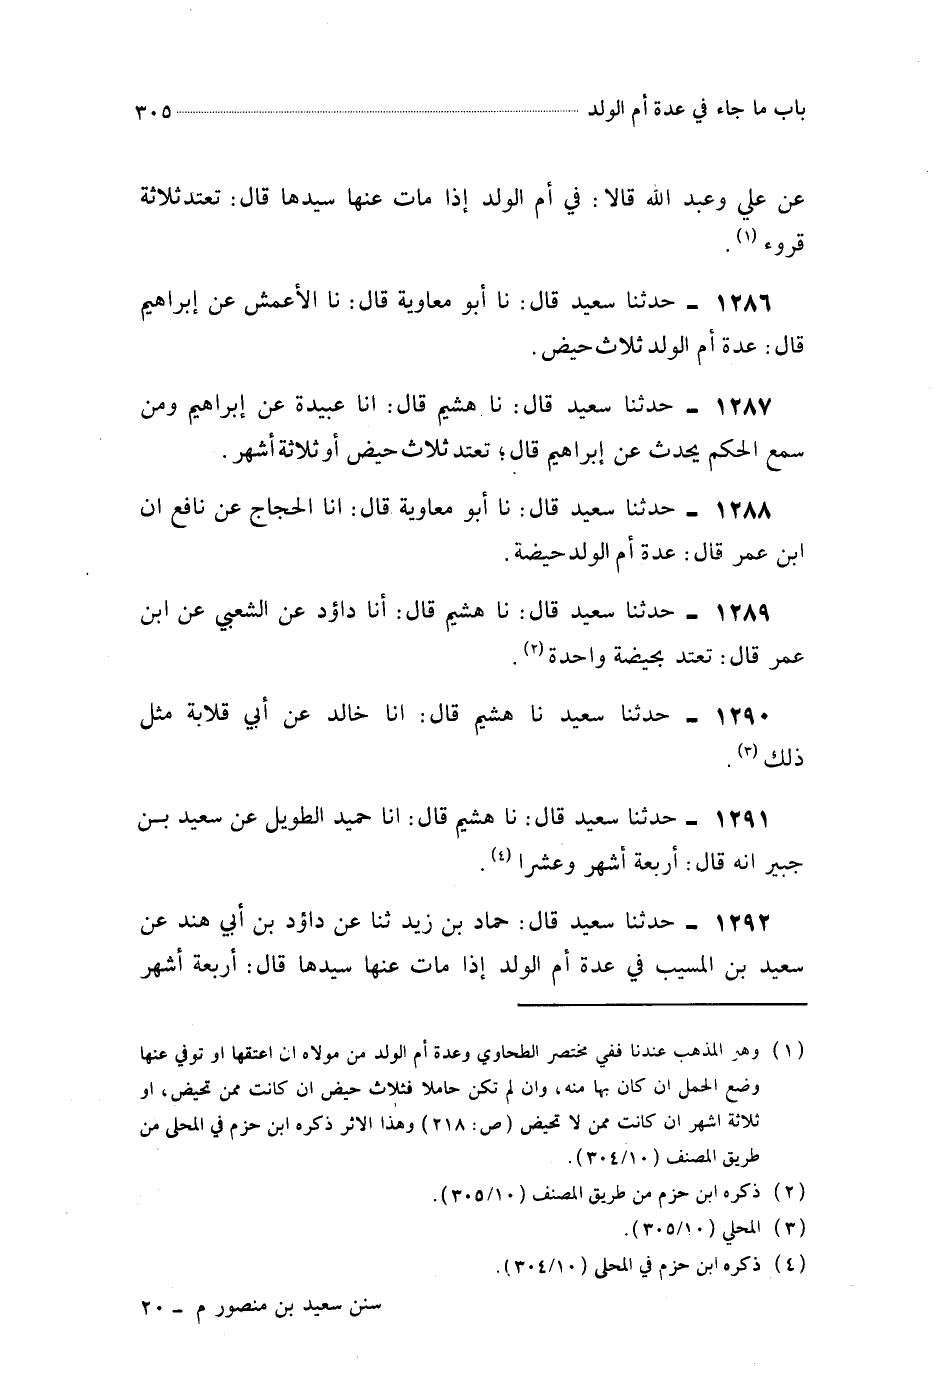 باب ما جاء في عدة أم الولد ٣٠٥
عن علي وعبد الله قالا: في أم الولد إذا مات عنها سيدها قال: تعتد ثلاثة
قروء (١).
١٢٨٦ ـ حدثنا سعيد قال: نا أبو معاوية قال: نا الأعمش عن إبراهيم
قال: عدة أم الولد ثلاث حيض.
١٢٨٧ ـ حدثنا سعيد قال: نا هشيم قال: انا عبيدة عن إبراهيم ومن
سمع الحكم يحدث عن إبراهيم قال؛ تعتد ثلاث حيض أو ثلاثة أشهر.
١٢٨٨ ـ حدثنا سعيد قال: نا أبو معاوية قال: انا الحجاج عن نافع ان
ابن عمر قال: عدة أم الولد حيضة.
١٢٨٩ ـ حدثنا سعيد قال: نا هشيم قال: أنا داؤد عن الشعبي عن ابن
عمر قال: تعتد بحيضة واحدة (٢).
١٢٩٠ ـ حدثنا سعيد نا هشيم قال: انا خالد عن أبي قلابة مثل
ذلك (٣).
١٢٩١ ـ حدثنا سعيد قال: نا هشيم قال: انا حميد الطويل عن سعيد بن
جبير انه قال: أربعة أشهر وعشرا (٤).
١٢٩٢ ـ حدثنا سعيد قال: حماد بن زيد ثنا عن داؤد بن أبي هند عن
سعيد بن المسيب في عدة أم الولد إذا مات عنها سيدها قال: أربعة أشهر
(١) وهو المذهب عندنا ففي مختصر الطحاوي وعدة أم الولد من مولاه ان اعتقها او توفي عنها
وضع الحمل ان كان بها منه، وان لم تكن حاملا فثلاث حيض ان كانت ممن تحيض، او
ثلاثة اشهر ان كانت ممن لا تحيض (ص: ٢١٨) وهذا الاثر ذكره ابن حزم في المحلى من
طريق المصنف (٣٠٤/١٠).
(٢) ذكره ابن حزم من طريق المصنف (٣٠٥/١٠).
(٣) المحلي (٣٠٥/١٠).
(٤) ذكره ابن حزم في المحلى (٣٠٤/١٠).
سنن سعيد بن منصور م ـ ٢٠